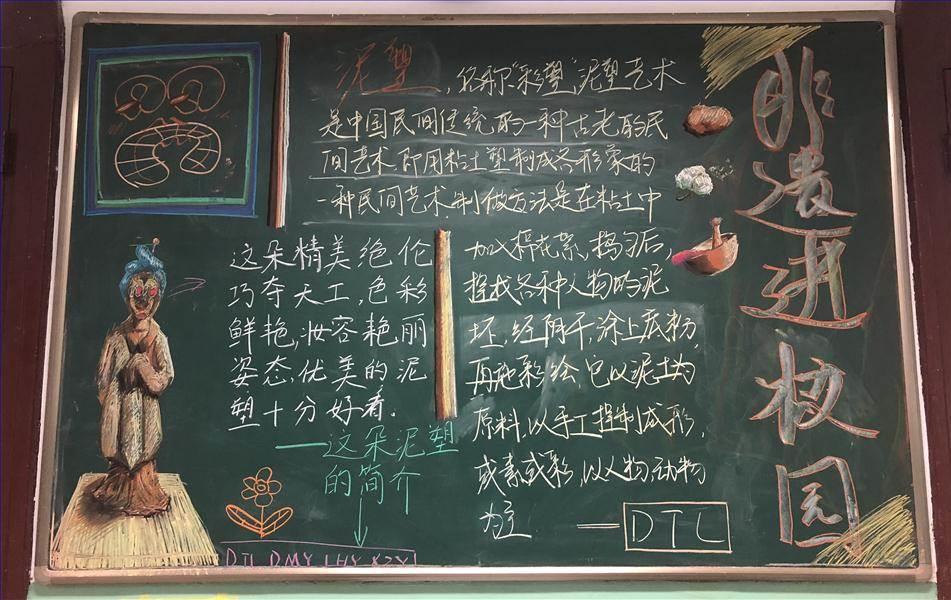 非遗进校园
泥塑，名称“彩塑”，泥塑艺术
是中国民间传统的一种古老的民
间艺术.即用粘土塑制成各形象的
一种民间艺术，制做方法是在粘土中
加入棉花絮，捣匀后，
捏成各种人物的泥
坯，经阴干，涂上底粉，
再施彩绘，它以泥土为
原料，以手工捏制成形，
或素或彩，以人物，动物
为主
—DTL
这朵精美绝伦
巧夺天工，色彩
鲜艳，妆容艳丽
姿态，优美的泥
塑十分好看.
—这朵泥塑
的简介
DTL DMY LHY KZY